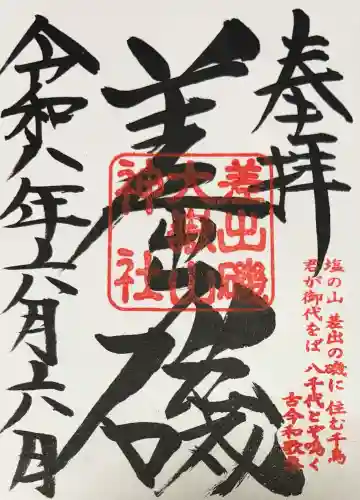 奉拝
差出磯
差出磯
大嶽山
神社
塩の山 差出の磯に 住む千鳥
君が御代をば 八千代とぞ鳴く
古今和歌集
令和八年六月六日